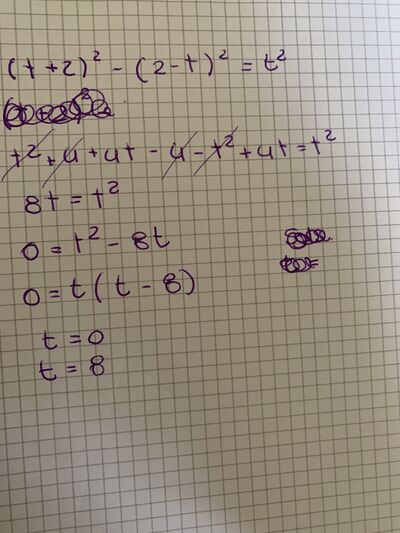 (t+2)² - (2-t)² = t²
t² + 4 + 4t - 4 - t² + 4t = t²
8t = t²
0 = t² - 8t
0 = t (t - 8)
t = 0
t = 8